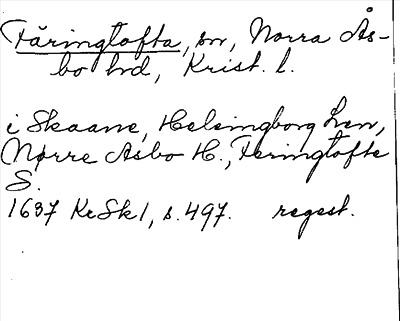 Färingtofta, sn, Norra Ås-
bo hd, Krist. l.
i Skaane, Helsingborg Len,
Nørre Asbo H., Feringtofte
S.
1637 KrSk1, s. 497. regest.